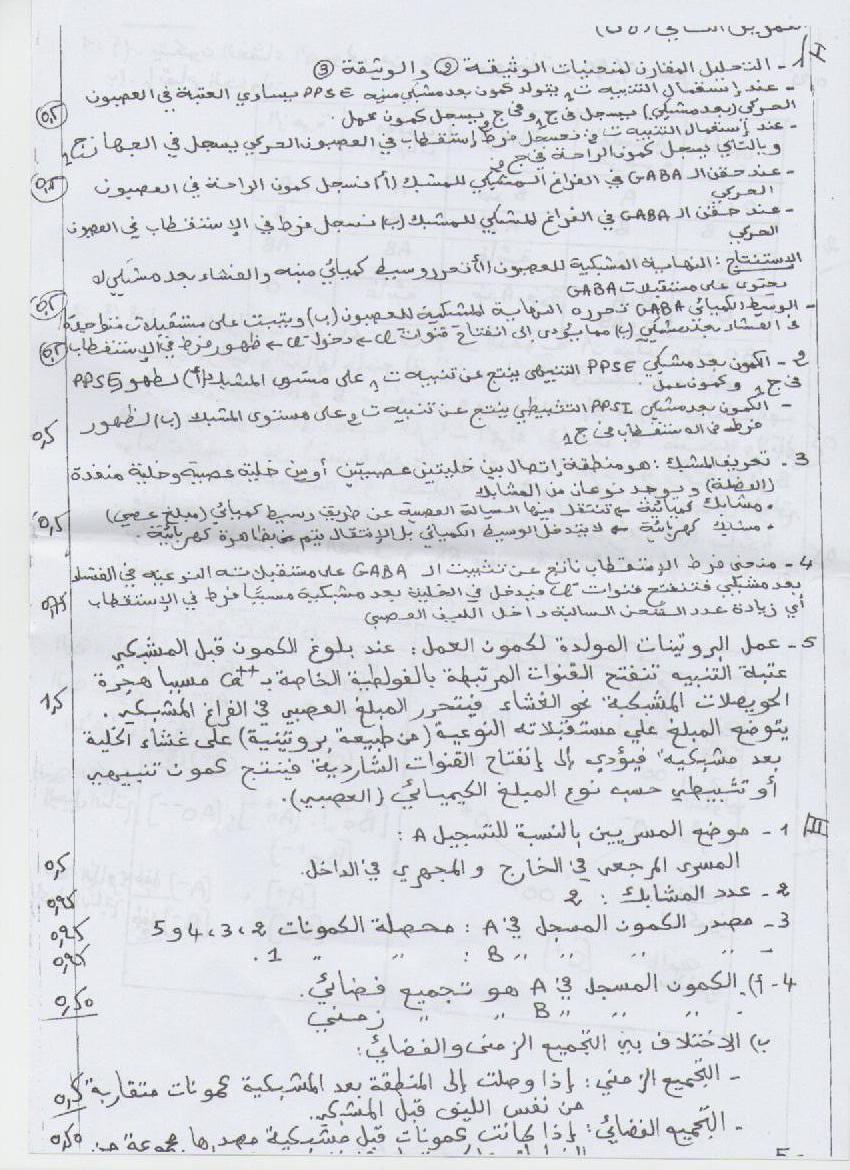 التمرين الثاني
I
1 - التحليل المقارن لمنحنيات الوثيقة 2 والوثيقة 3
- عند إستعمال التنبيه ت1 يتولد كمون بعد مشبكي منبه PPSE يساوي العتبة في العصبون
الحركي (بعد مشبكي) يسجل في ج1 وفي ج2 يسجل كمون عمل. 0,5
- عند إستعمال التنبيه ت2 نسجل فرط إستقطاب في العصبون الحركي يسجل في الجهاز ج1
وبالتالي يسجل كمون الراحة في ج2
- عند حقن الـ GABA في الفراغ المشبكي للمشبك (أ) نسجل كمون الراحة في العصبون 0,5
الحركي
- عند حقن الـ GABA في الفراغ المشبكي للمشبك (ب) نسجل فرط في الإستقطاب في العصبون
الحركي
الإستنتاج: النهاية المشبكية للعصبون (أ) تحرر وسيط كميائي منبه والغشاء بعد مشبكي لا
يحتوي على مستقبلات GABA 0,5
- الوسيط الكميائي GABA تحرره النهاية المشبكية للعصبون (ب) ويثبت على مستقبلات متواجدة
في الغشاء بعد مشبكي (ب) مما يؤدي الى انفتاح قنوات Cl⁻ ← دخول Cl⁻ ← ظهور فرط في الإستقطاب 0,5
2 - الكمون بعد مشبكي PPSE التنبيهي ينتج عن تنبيه ت1 على مستوى المشبك (أ) لظهور PPSE
في ج1 وكمون عمل.
- الكمون بعد مشبكي PPSI التثبيطي ينتج عن تنبيه ت2 على مستوى المشبك (ب) لظهور
فرط في الاستقطاب في ج1 0,5
3 - تعريف المشبك: هو منطقة إتصال بين خليتين عصبيتين أو بين خلية عصبية وخلية منفذة
(العضلة) ويوجد نوعان من المشابك
• مشابك كميائية ← تنتقل فيها السيالة العصبية عن طريق وسيط كميائي (مبلغ عصبي) 0,5
• مشابك كهربائية ← لا يتدخل الوسيط الكميائي بل الإنتقال يتم بظاهرة كهربائية.
4 - منحنى فرط الإستقطاب ناتج عن تثبيت الـ GABA على مستقبلاته النوعية في الغشاء
بعد مشبكي فتنفتح قنوات Cl⁻ فيدخل في الخلية بعد مشبكية مسببا فرط في الإستقطاب 0,75
أي زيادة عدد الشحن السالبة داخل الليف العصبي
5 - عمل البروتينات المولدة لكمون العمل: عند بلوغ الكمون قبل المشبكي
عتبة التنبيه تنفتح القنوات المرتبطة بالفولطية الخاصة بـ Ca⁺⁺ مسببا هجرة
الحويصلات المشبكية نحو الغشاء فيتحرر المبلغ العصبي في الفراغ المشبكي. 1,5
يتوضع المبلغ على مستقبلاته النوعية (من طبيعة بروتينية) على غشاء الخلية
بعد مشبكية فيؤدي إلى إنفتاح القنوات الشاردية فينتج كمون تنبيهي
أو تثبيطي حسب نوع المبلغ الكيميائي (العصبي).
II
1 - موضع المسريين بالنسبة للتسجيل A :
المسرى المرجعي في الخارج و المجهري في الداخل. 0,5
2 - عدد المشابك : 2 0,25
3 - مصدر الكمون المسجل في A : محصلة الكمونات 2، 3، 4 و 5 0,25
" " " " B : " " 1. 0,25
4 - أ) الكمون المسجل في A هو تجميع فضائي. 0,50
" " " B " " زمني
ب) الاختلاف بين التجميع الزمني والفضائي:
- التجميع الزمني: إذا وصلت إلى المنطقة بعد المشبكية كمونات متقاربة 0,5
من نفس الليف قبل المشبكي.
- التجميع الفضائي: إذا كانت كمونات قبل مشبكية مصدرها مجموعة من 0,50
5 -